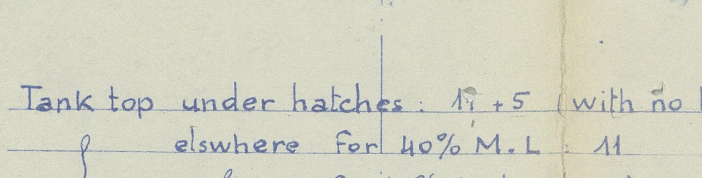 Tank top under hatches : 11 + 5 (with no
elswhere for 40% M.L : 11